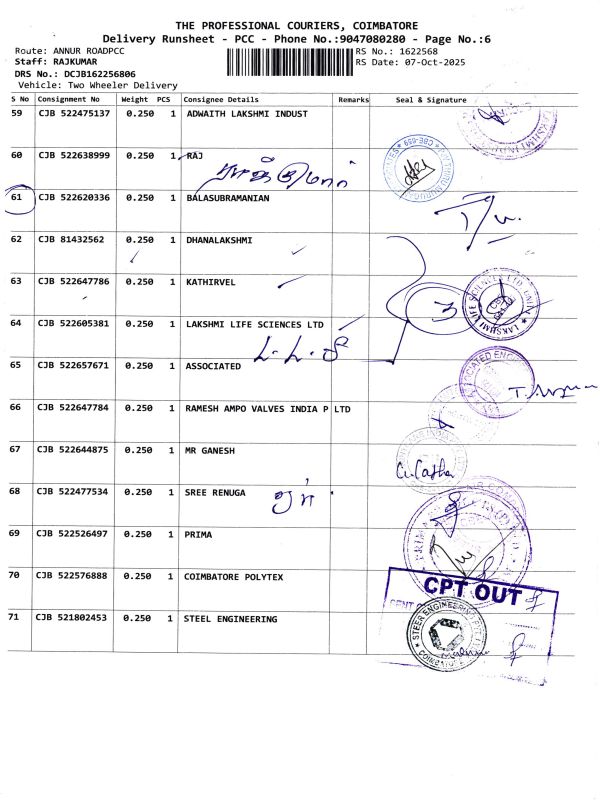 THE PROFESSIONAL COURIERS, COIMBATORE
Delivery Runsheet - PCC - Phone No.:9047080280 - Page No.:6
Route: ANNUR ROADPCC RS No.: 1622568
Staff: RAJKUMAR RS Date: 07-Oct-2025
DRS No.: DCJB162256806
Vehicle: Two Wheeler Delivery
S No Consignment No Weight PCS Consignee Details Remarks Seal & Signature
59 CJB 522475137 0.250 1 ADWAITH LAKSHMI INDUST
60 CJB 522638999 0.250 1 RAJ
61 CJB 522620336 0.250 1 BALASUBRAMANIAN
62 CJB 81432562 0.250 1 DHANALAKSHMI
63 CJB 522647786 0.250 1 KATHIRVEL
3
LAKSHMI LIFE SCIENCES LTD
64 CJB 522605381 0.250 1 LAKSHMI LIFE SCIENCES LTD
65 CJB 522657671 0.250 1 ASSOCIATED
66 CJB 522647784 0.250 1 RAMESH AMPO VALVES INDIA P LTD
67 CJB 522644875 0.250 1 MR GANESH
68 CJB 522477534 0.250 1 SREE RENUGA
69 CJB 522526497 0.250 1 PRIMA
70 CJB 522576888 0.250 1 COIMBATORE POLYTEX
CPT OUT
71 CJB 521802453 0.250 1 STEEL ENGINEERING